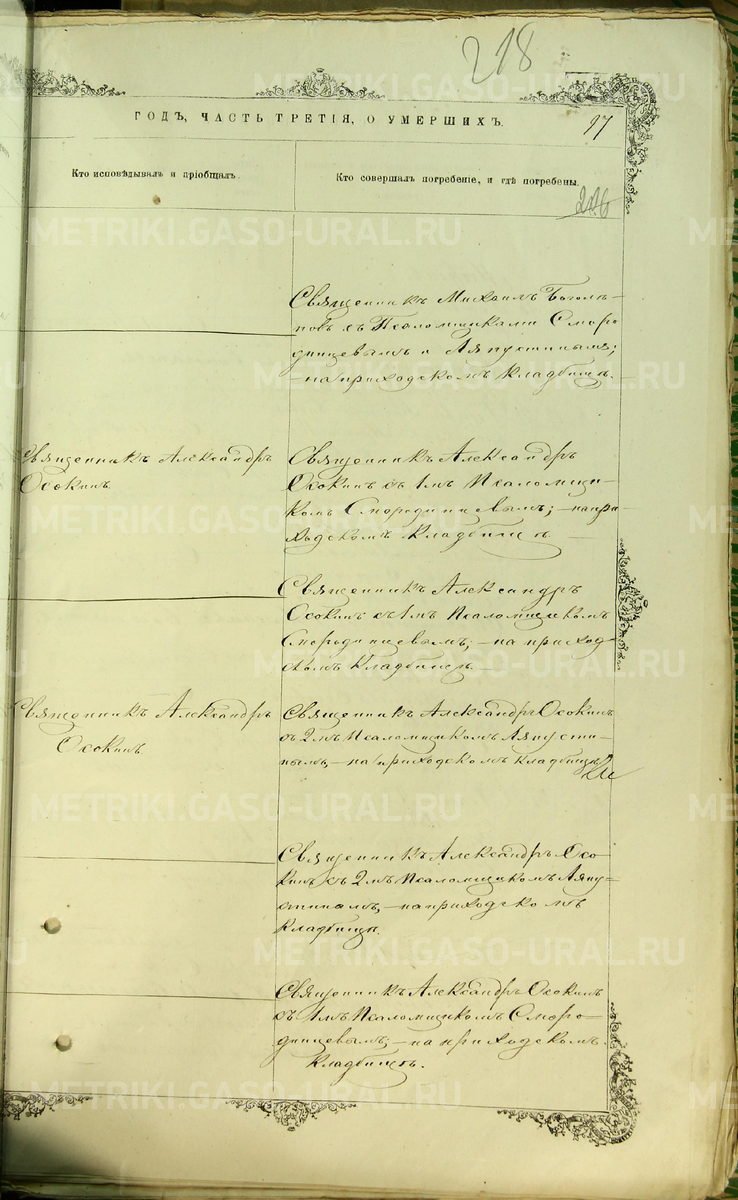 218
ГОДЪ, ЧАСТЬ ТРЕТІЯ, О УМЕРШИХЪ.
97
Кто исповѣдывалъ и пріобщалъ.
Кто совершалъ погребеніе, и гдѣ погребены.
216
Священникъ Михаилъ Богом-
съ Псаломщиками Сморо
динцевымъ и Ляпустинымъ;
– на приходскомъ кладбищѣ.
Священникъ Александръ
Осокинъ
Священникъ Александръ
Осокинъ съ 1мъ Псаломщи-
комъ Смородинцевымъ; – на при
ходскомъ кладбищѣ
Священникъ Александръ
Осокинъ съ 1мъ Псаломщикомъ
Смородинцевымъ; – на приход-
скомъ кладбищѣ
Священникъ Александръ
Осокинъ
Священникъ Александръ Осокинъ
съ 2мъ Псаломщикомъ Ляпусти-
нымъ, – на приходскомъ кладбищѣ
Священникъ Александръ Осо-
кинъ съ 2мъ Псаломщикомъ Ляпу-
стинымъ, – на приходскомъ
кладбищѣ.
Священникъ Александръ Осокинъ
съ 1мъ Псаломщикомъ Сморо-
динцевымъ, – на приходскомъ
кладбищѣ.
METRIKI.GASO-URAL.RU